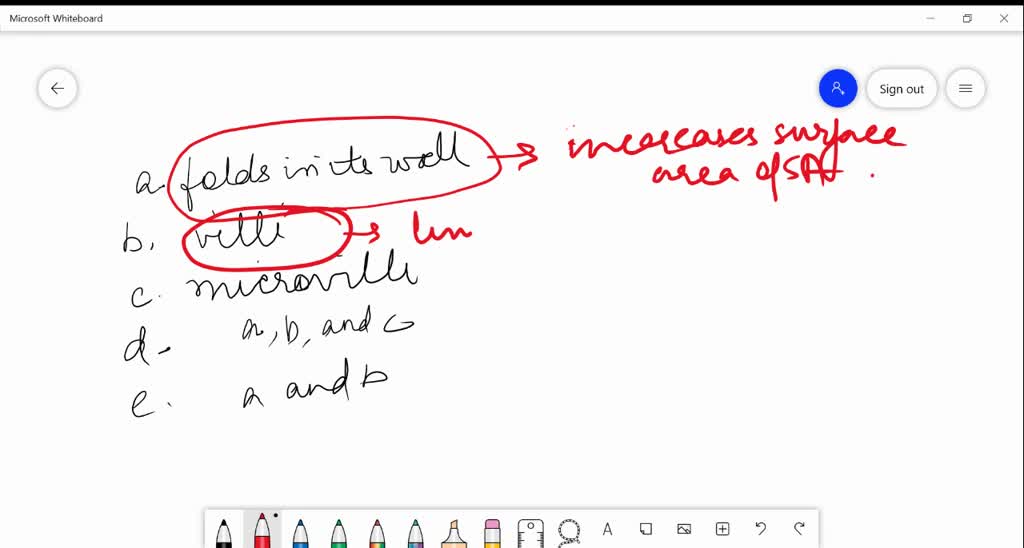 Microsoft Whiteboard
Sign out
a. folds in its wall → increases surface
area of SA .
b. villi → lin
c. microvilli
d. a, b, and c
e. a and b
A